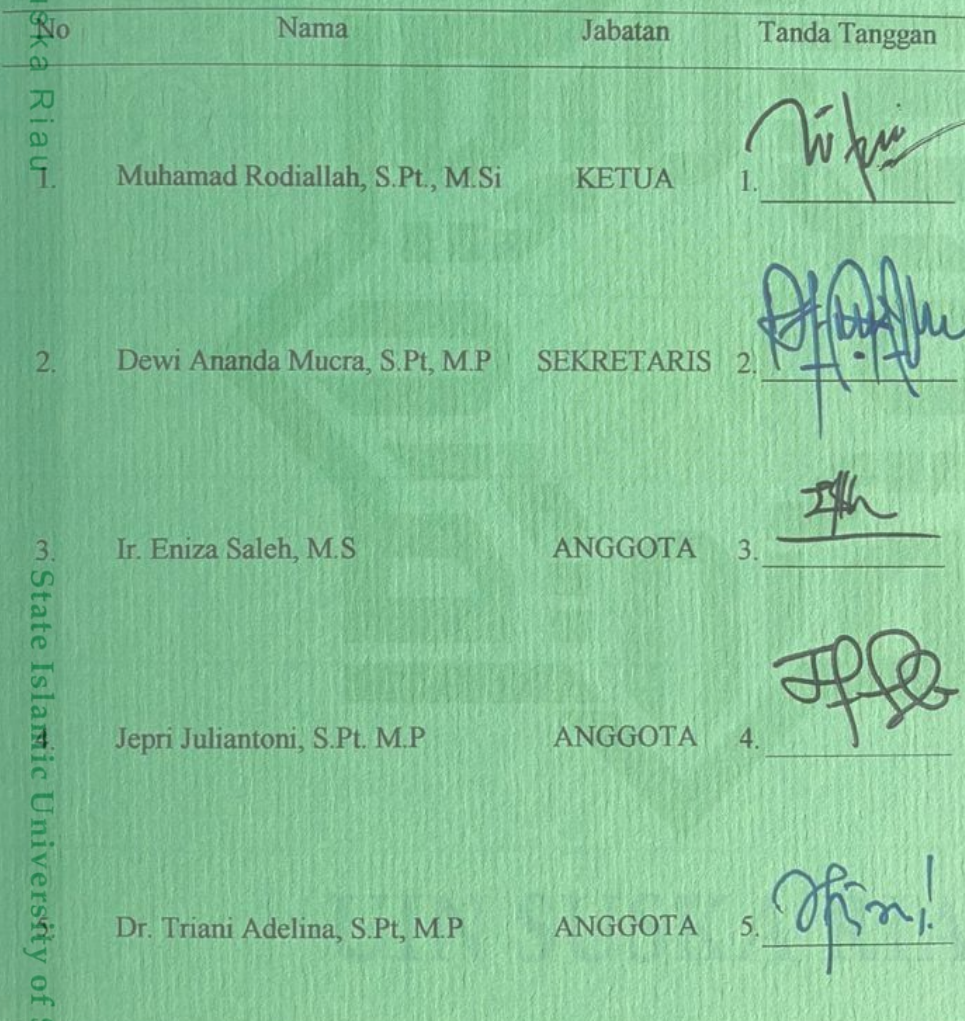 No Nama Jabatan Tanda Tanggan
1. Muhamad Rodiallah, S.Pt., M.Si KETUA 1.
2. Dewi Ananda Mucra, S.Pt, M.P SEKRETARIS 2.
3. Ir. Eniza Saleh, M.S ANGGOTA 3.
4. Jepri Juliantoni, S.Pt. M.P ANGGOTA 4.
5. Dr. Triani Adelina, S.Pt, M.P ANGGOTA 5.
ska Riau
State Islamic University of